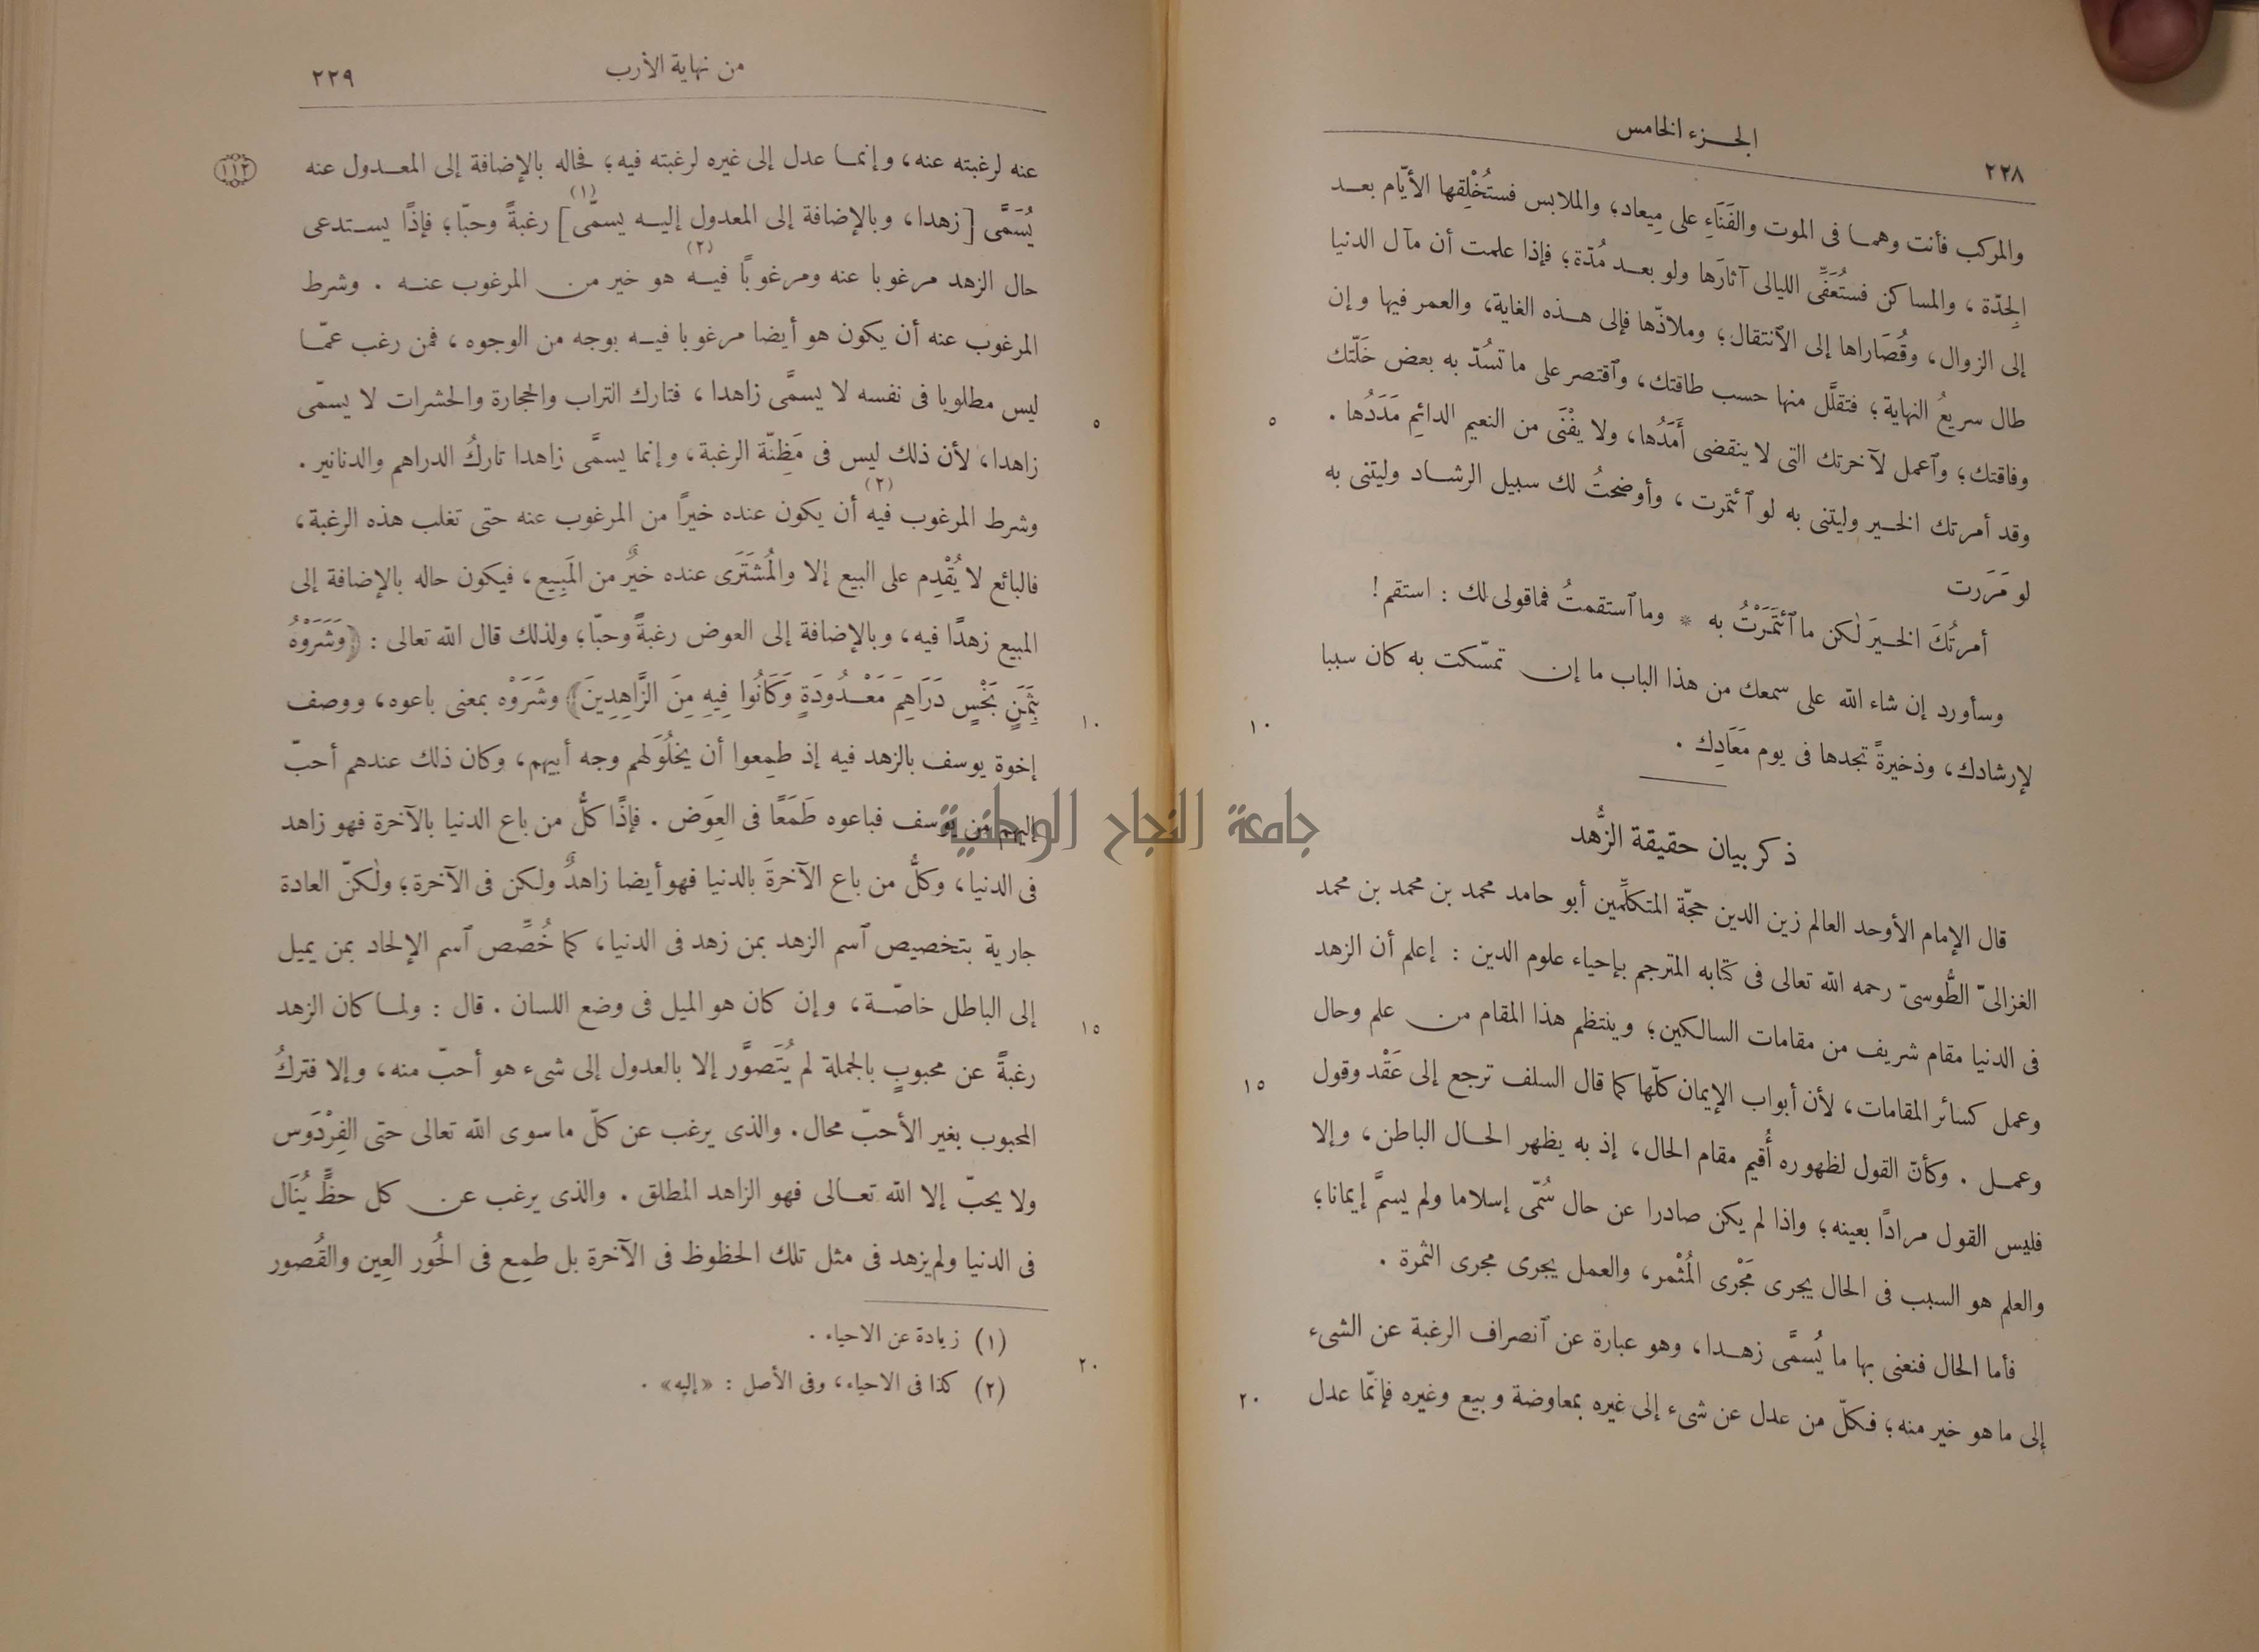 الجزء الخامس
٢٢٨
والمركب فأنت وهما فى الموت والفَنَاءِ على مِيعاد؛ والملابس فستُخْلِقها الأيّام بعد
الجِدّة، والمساكن فستُعَفِّى الليالى آثارَها ولو بعد مُدّة؛ فإذا علمت أن مآل الدنيا
إلى الزوال، وقُصَاراها إلى الٱنتقال؛ وملاذّها فإلى هذه الغاية، والعمر فيها وإن
طال سريعُ النهاية؛ فتقلَّل منها حسب طاقتك، وٱقتصر على ما تسُدّ به بعض خَلّتك
٥
وفاقتك؛ وٱعمل لآخرتك التى لا ينقضى أَمَدُها، ولا يفْنَى من النعيم الدائمِ مَدَدُها.
وقد أمرتك الخير وليتنى به لو ٱئتمرت، وأوضحتُ لك سبيل الرشاد وليتنى به
لو مَرَرت
أمرتُكَ الخيرَ لٰكن ما ٱئتَمَرْتُ به * وما ٱستقمتُ فما قولى لك : استقم!
وسأورد إن شاء الله على سمعك من هذا الباب ما إن تمسّكت به كان سببا
١٠
لإرشادك، وذخيرةً تجدها فى يوم مَعَادِك.
ذكر بيان حقيقة الزُّهد
قال الإمام الأوحد العالم زين الدين حجّة المتكلّمين أبو حامد محمد بن محمد بن محمد
الغزالىّ الطُّوسىّ رحمه الله تعالى فى كتابه المترجم بإحياء علوم الدين : إعلم أن الزهد
فى الدنيا مقام شريف من مقامات السالكين؛ وينتظم هذا المقام من علم وحال
١٥
وعمل كسائر المقامات، لأن أبواب الإيمان كلّها كما قال السلف ترجع إلى عَقْد وقول
وعمل. وكأنّ القول لظهوره أُقيم مقام الحال، إذ به يظهر الحال الباطن، وإلا
فليس القول مرادًا بعينه؛ واذا لم يكن صادرا عن حال سُمّى إسلاما ولم يسمَّ إيمانا؛
والعلم هو السبب فى الحال يجرى مَجْرى المُثْمر، والعمل يجرى مجرى الثمرة.
فأما الحال فنعنى بها ما يُسمَّى زهدا، وهو عبارة عن ٱنصراف الرغبة عن الشىء
٢٠
إلى ما هو خير منه؛ فكلّ من عدل عن شىء إلى غيره بمعاوضة وبيع وغيره فإنّما عدل
من نهاية الأرب
٢٢٩
عنه لرغبته عنه، وإنما عدل إلى غيره لرغبته فيه؛ فحاله بالإضافة إلى المعدول عنه
١١٢
يُسَمَّى [زهدا، وبالإضافة إلى المعدول إليه يسمّى] (١) رغبةً وحبّا؛ فإذًا يستدعى
حال الزهد مرغوبا عنه ومرغوبًا فيه (٢) هو خير من المرغوب عنه. وشرط
المرغوب عنه أن يكون هو أيضا مرغوبا فيه بوجه من الوجوه، فمن رغب عمّا
ليس مطلوبا فى نفسه لا يسمَّى زاهدا، فتارك التراب والحجارة والحشرات لا يسمّى
٥
زاهدا، لأن ذلك ليس فى مَظِنّة الرغبة، وإنما يسمَّى زاهدا تاركُ الدراهم والدنانير.
وشرط المرغوب فيه (٢) أن يكون عنده خيرًا من المرغوب عنه حتى تغلب هذه الرغبة،
فالبائع لا يُقْدِم على البيع إلا والمُشتَرَى عنده خيرٌ من المَبِيع، فيكون حاله بالإضافة إلى
المبيع زهدًا فيه، وبالإضافة إلى العوض رغبةً وحبّا؛ ولذلك قال الله تعالى : ﴿وَشَرَوْهُ
بِثَمَنٍ بَخْسٍ دَرَاهِمَ مَعْدُودَةٍ وَكَانُوا فِيهِ مِنَ الزَّاهِدِينَ﴾ وشَرَوْه بمعنى باعوه، ووصف
١٠
إخوة يوسف بالزهد فيه إذ طمِعوا أن يخلُوَ لهم وجه أبيهم، وكان ذلك عندهم أحبّ
إليهم من يوسف فباعوه طَمَعًا فى العِوَض. فإذًا كلُّ من باع الدنيا بالآخرة فهو زاهد
جامعة النجاح الوطنية
فى الدنيا، وكلُّ من باع الآخرةَ بالدنيا فهو أيضا زاهدٌ ولكن فى الآخرة؛ ولٰكنّ العادة
جارية بتخصيص ٱسم الزهد بمن زهد فى الدنيا، كما خُصِّص ٱسم الإلحاد بمن يميل
إلى الباطل خاصّة، وإن كان هو الميل فى وضع اللسان. قال : ولما كان الزهد
١٥
رغبةً عن محبوبٍ بالجملة لم يُتَصوَّر إلا بالعدول إلى شىء هو أحبّ منه، وإلا فتركُ
المحبوب بغير الأحبّ محال. والذى يرغب عن كلّ ما سوى الله تعالى حتى الفِرْدَوس
ولا يحبّ إلا الله تعالى فهو الزاهد المطلق. والذى يرغب عن كل حظٍّ يُنَال
فى الدنيا ولم يزهد فى مثل تلك الحظوظ فى الآخرة بل طمِع فى الحُور العِين والقُصور
(١) زيادة عن الاحياء.
٢٠
(٢) كذا فى الاحياء، وفى الأصل : «إليه».